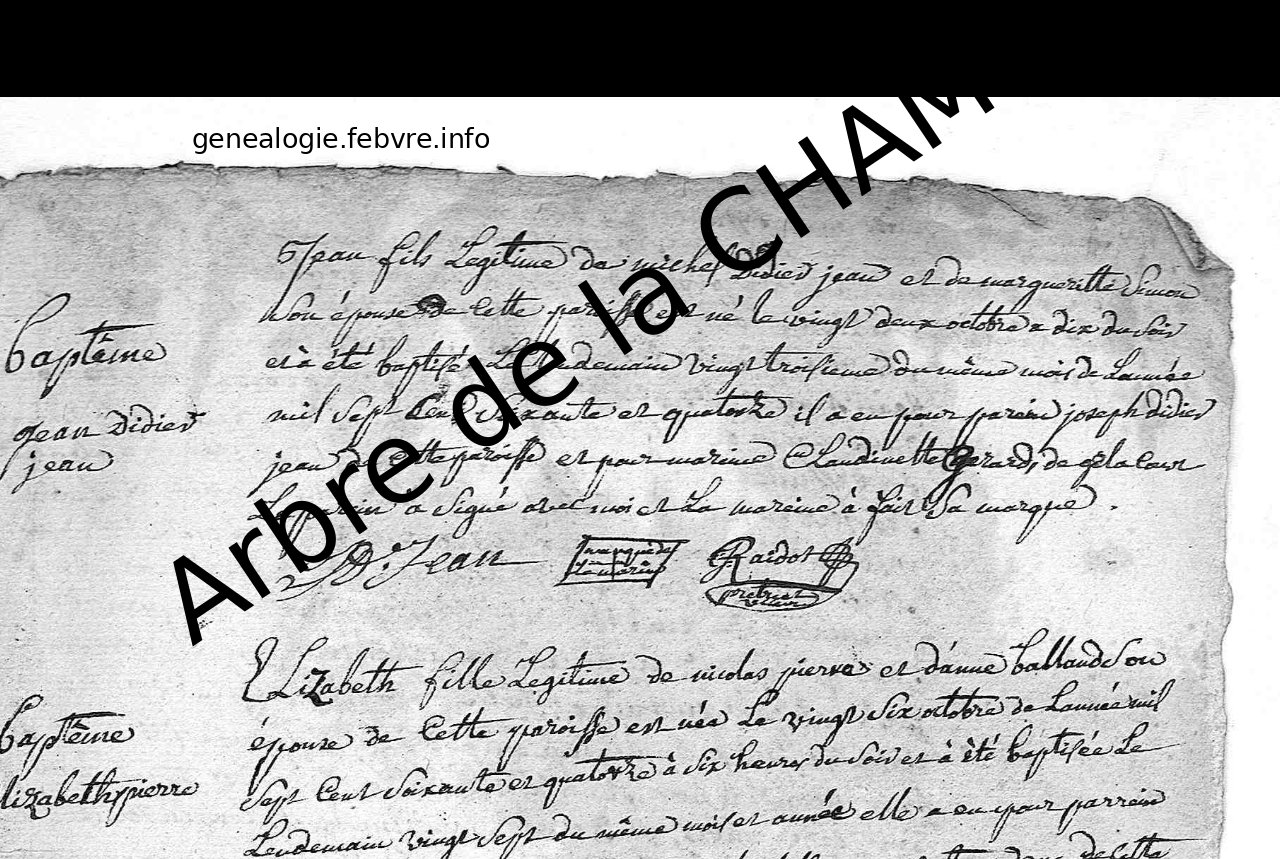 genealogie.febvre.info
Arbre de la CHAM
baptême
jean Didier
jean
Jean fils Legitime de michel Didier jean et de margueritte Simon
Son épouse de Cette paroisse est né le vingt deux octobre a dix du Soir
et à été baptisé Le lendemain vingt troisieme du même mois de Lannée
mil Sept Cent Soixante et quatorze il a eu pour parein joseph didier
jean de Cette paroisse et pour mareine Claudinette Gerard, de
Le parein a Signé avec moi et La mareine à fait Sa marque .
D. Jean
marque de
la mareine
Raidot
baptême
lizabeth pierre
Elizabeth fille Legitime de nicolas pierre et d'anne balland Son
épouse de Cette paroisse est née Le vingt Six octobre de Lannée mil
Sept Cent Soixante et quatorze à Six heures du Soir et à été baptisée Le
Lendemain vingt Sept du même mois et année elle a eu pour parrein
de Cette